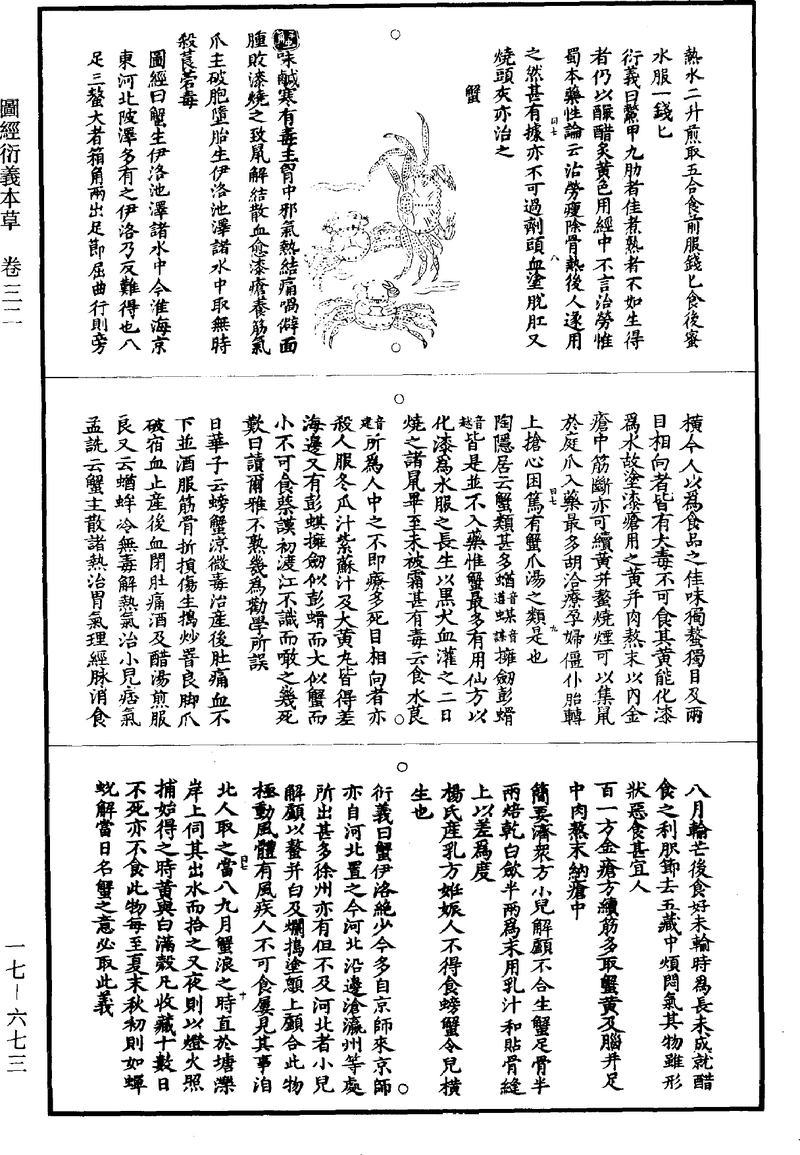 圖經衍義本草　卷三二
一七－六七三
熱水二升煎取五合食前服錢匕食後蜜
水服一錢匕
衍義曰鱉甲九肋者佳煮熟者不如生得
者仍以釅醋炙黃色用經中不言治勞惟
蜀本藥性論云治勞瘦除骨熱後人遂用
之然甚有據亦不可過劑頭血塗脫肛又
燒頭灰亦治之
蟹
味鹹寒有毒主胷中邪氣熱結痛喎僻面
腫敗漆燒之致鼠解結散血愈漆瘡養筋氣
爪主破胞墮胎生伊洛池澤諸水中取無時
殺莨菪毒
圖經曰蟹生伊洛池澤諸水中今淮海京
東河北陂澤多有之伊洛乃反難得也八
足三螯大者箱角兩出足節屈曲行則旁
橫今人以為食品之佳味獨螯獨目及兩
目相向者皆有大毒不可食其黃能化漆
為水故塗漆瘡用之黃并肉熬末以內金
瘡中筋斷亦可續黃并螯燒煙可以集鼠
於庭爪入藥最多胡洽療孕婦僵仆胎轉
上搶心困篤有蟹爪湯之類是也
陶隱居云蟹類甚多蝤音道蛑音謀擁劒彭螖
音越皆是並不入藥惟蟹最多有用仙方以
化漆為水服之長生以黑犬血灌之二日
燒之諸鼠畢至未被霜甚有毒云食水莨
音建所為人中之不即療多死目相向者亦
殺人服冬瓜汁紫蘇汁及大黃丸皆得差
海邊又有彭蜞擁劒似彭螖而大似蟹而
小不可食蔡謨初渡江不識而噉之幾死
歎曰讀爾雅不熟幾為勸學所誤
日華子云螃蟹涼微毒治產後肚痛血不
下並酒服筋骨折損傷生搗炒罯良脚爪
破宿血止產後血閉肚痛酒及醋湯煎服
良又云蝤蛑冷無毒解熱氣治小兒痞氣
孟詵云蟹主散諸熱治胃氣理經脉消食
八月輸芒後食好未輸時為長未成就醋
食之利肢節去五藏中煩悶氣其物雖形
狀惡食甚宜人
百一方金瘡方續筋多取蟹黃及腦并足
中肉熬末納瘡中
簡要濟衆方小兒解顱不合生蟹足骨半
兩焙乾白斂半兩為末用乳汁和貼骨縫
上以差為度
楊氏產乳方妊娠人不得食螃蟹令兒橫
生也
衍義曰蟹伊洛絕少今多自京師來京師
亦自河北置之今河北沿邊滄瀛州等處
所出甚多徐州亦有但不及河北者小兒
解顱以螯并白及爛搗塗顖上顱合此物
極動風體有風疾人不可食屢見其事洎
北人取之當八九月蟹浪之時直於塘濼
岸上伺其出水而拾之又夜則以燈火照
捕始得之時黃與白滿殼凡收藏十數日
不死亦不食此物每至夏末秋初則如蟬
蛻解當日名蟹之意必取此義